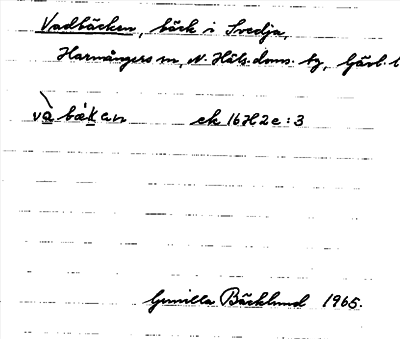 Vadbäcken, bäck i Svedja,
Harmångers sn, N. Häls. doms. by, Gävl. l
và bækan ek 16H2e:3
Gunilla Bäcklund 1965.